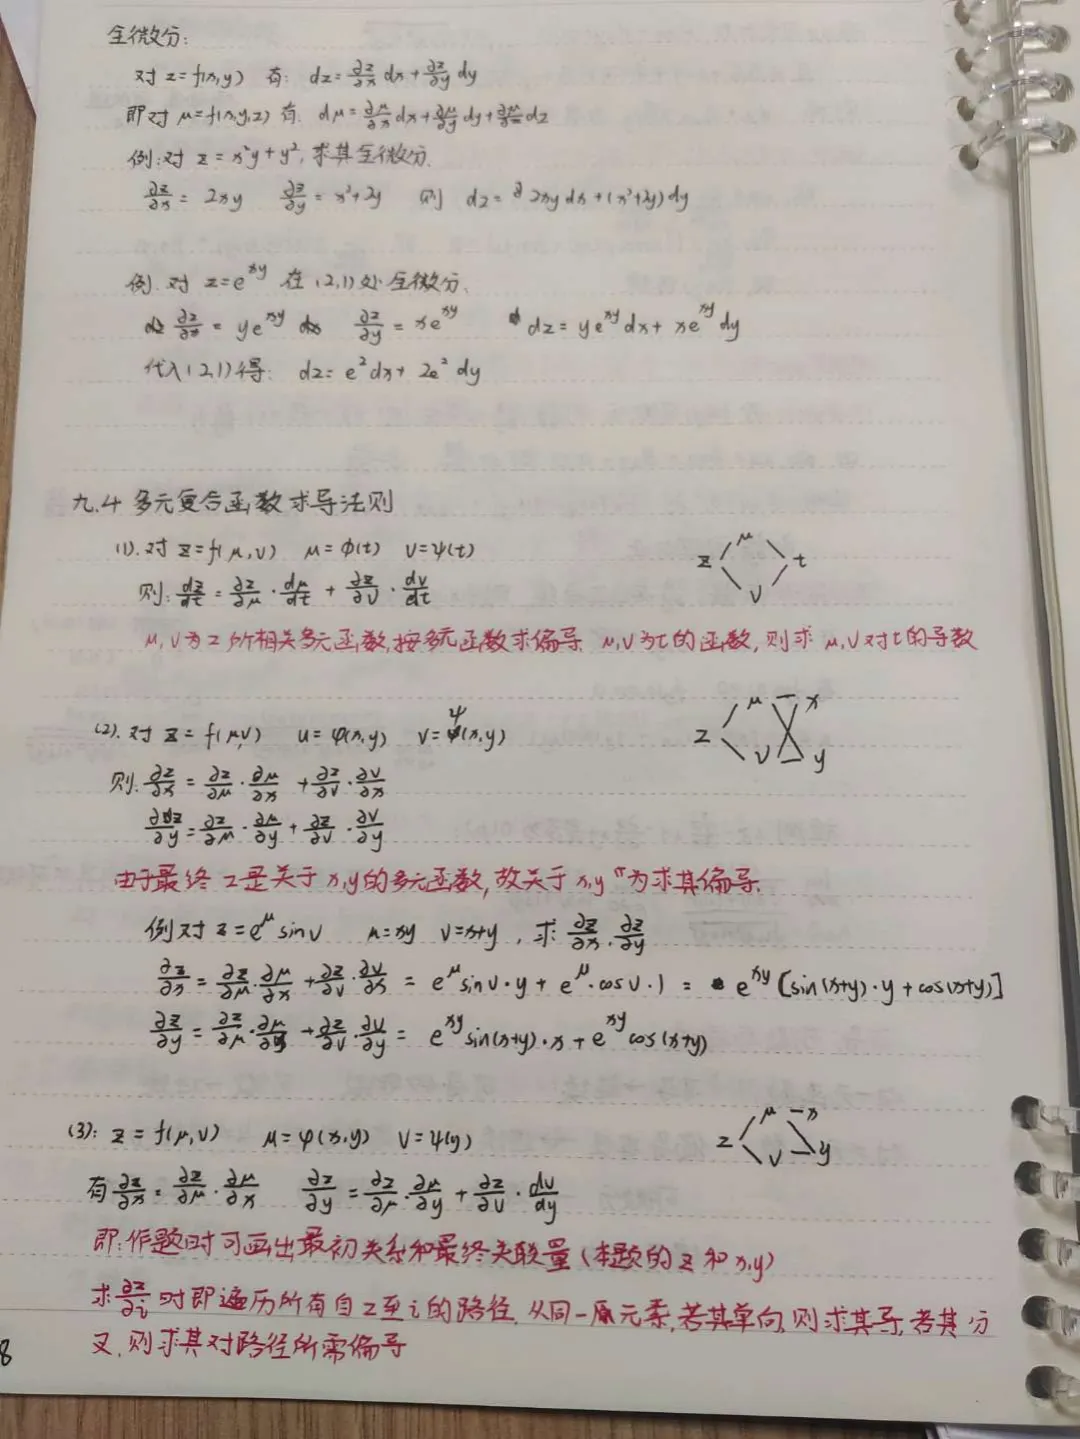 全微分:
对 z=f(x,y) 有: dz=∂z/∂x dx+∂z/∂y dy
即对 μ=f(x,y,z) 有: dμ=∂μ/∂x dx+∂μ/∂y dy+∂μ/∂z dz
例:对 z=x²y+y²,求其全微分.
∂z/∂x=2xy ∂z/∂y=x²+2y 则 dz=2xydx+(x²+2y)dy
例.对 z=e^xy 在(2,1)处全微分.
∂z/∂x=ye^xy ∂z/∂y=xe^xy dz=ye^xy dx+xe^xy dy
代入(2,1)得: dz=e²dx+2e²dy
九.4 多元复合函数求导法则
(1).对 z=f(μ,v) μ=φ(t) v=ψ(t)
z μ v t
则:dz/dt=∂z/∂μ·dμ/dt+∂z/∂v·dv/dt
μ,v为z所相关多元函数,按多元函数求偏导. μ,v为t的函数,则求μ,v对t的导数
(2).对 z=f(μ,v) u=φ(x,y) v=ψ(x,y)
z μ v x y
则:∂z/∂x=∂z/∂μ·∂μ/∂x+∂z/∂v·∂v/∂x
∂z/∂y=∂z/∂μ·∂μ/∂y+∂z/∂v·∂v/∂y
由于最终z是关于x,y的多元函数,故关于x,y为求其偏导.
例对 z=e^μ sinv μ=xy v=x+y,求∂z/∂x.∂z/∂y
∂z/∂x=∂z/∂μ·∂μ/∂x+∂z/∂v·∂v/∂x=e^μ sinv·y+e^μ·cosv·1=e^xy[sin(x+y)·y+cos(x+y)]
∂z/∂y=∂z/∂μ·∂μ/∂y+∂z/∂v·∂v/∂y=e^xy sin(x+y)·x+e^xy cos(x+y)
(3): z=f(μ,v) μ=φ(x,y) v=ψ(y)
z μ v x y
有∂z/∂x=∂z/∂μ·∂μ/∂x ∂z/∂y=∂z/∂μ·∂μ/∂y+∂z/∂v·dv/dy
即:作题时可画出最初关系和最终关联量(本题的z和x,y)
求∂z/∂i时即遍历所有自z至i的路径.从同一原元素,若其单向,则求其导,若其分
叉,则求其对路径所需偏导
8